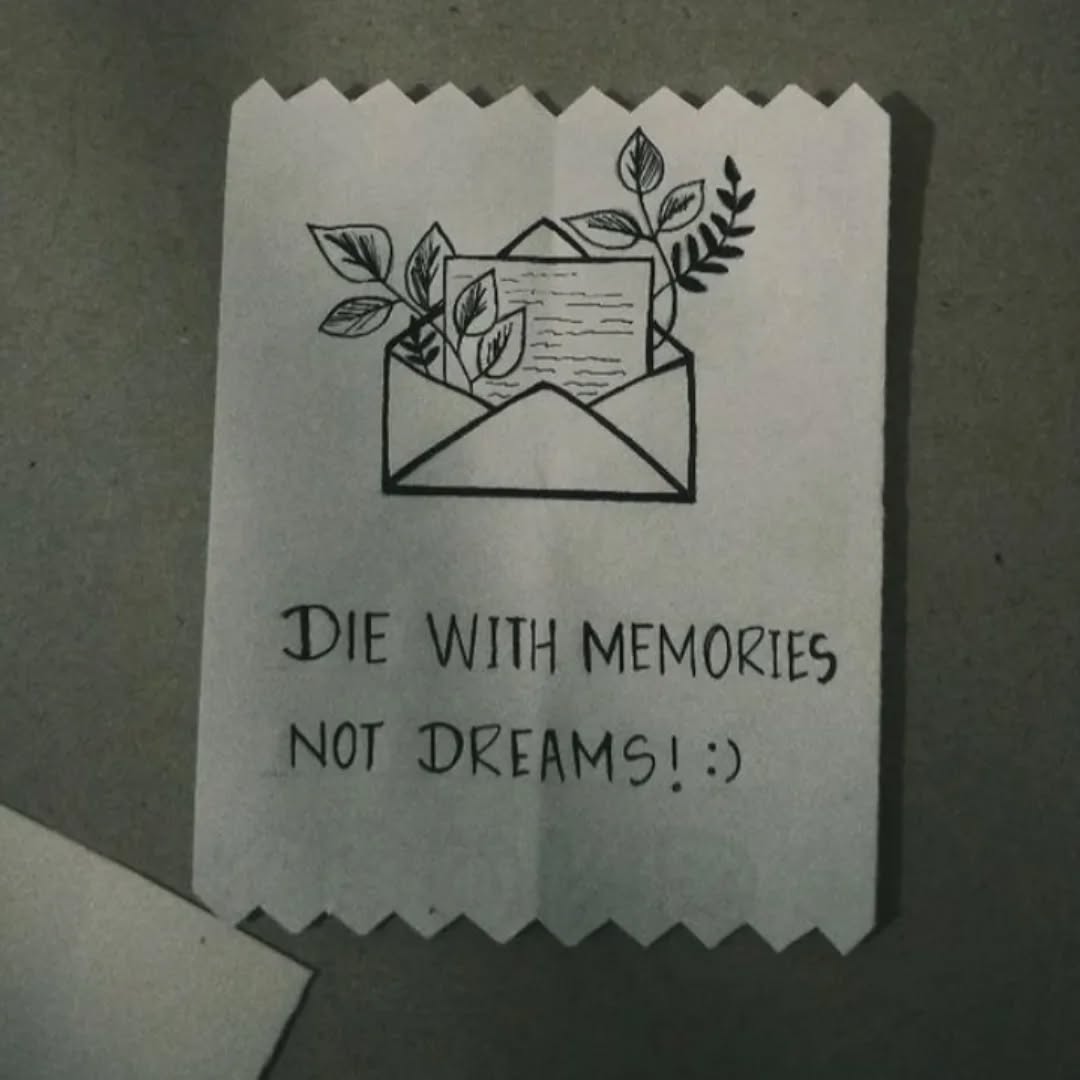 DIE WITH MEMORIES
NOT DREAMS! :)